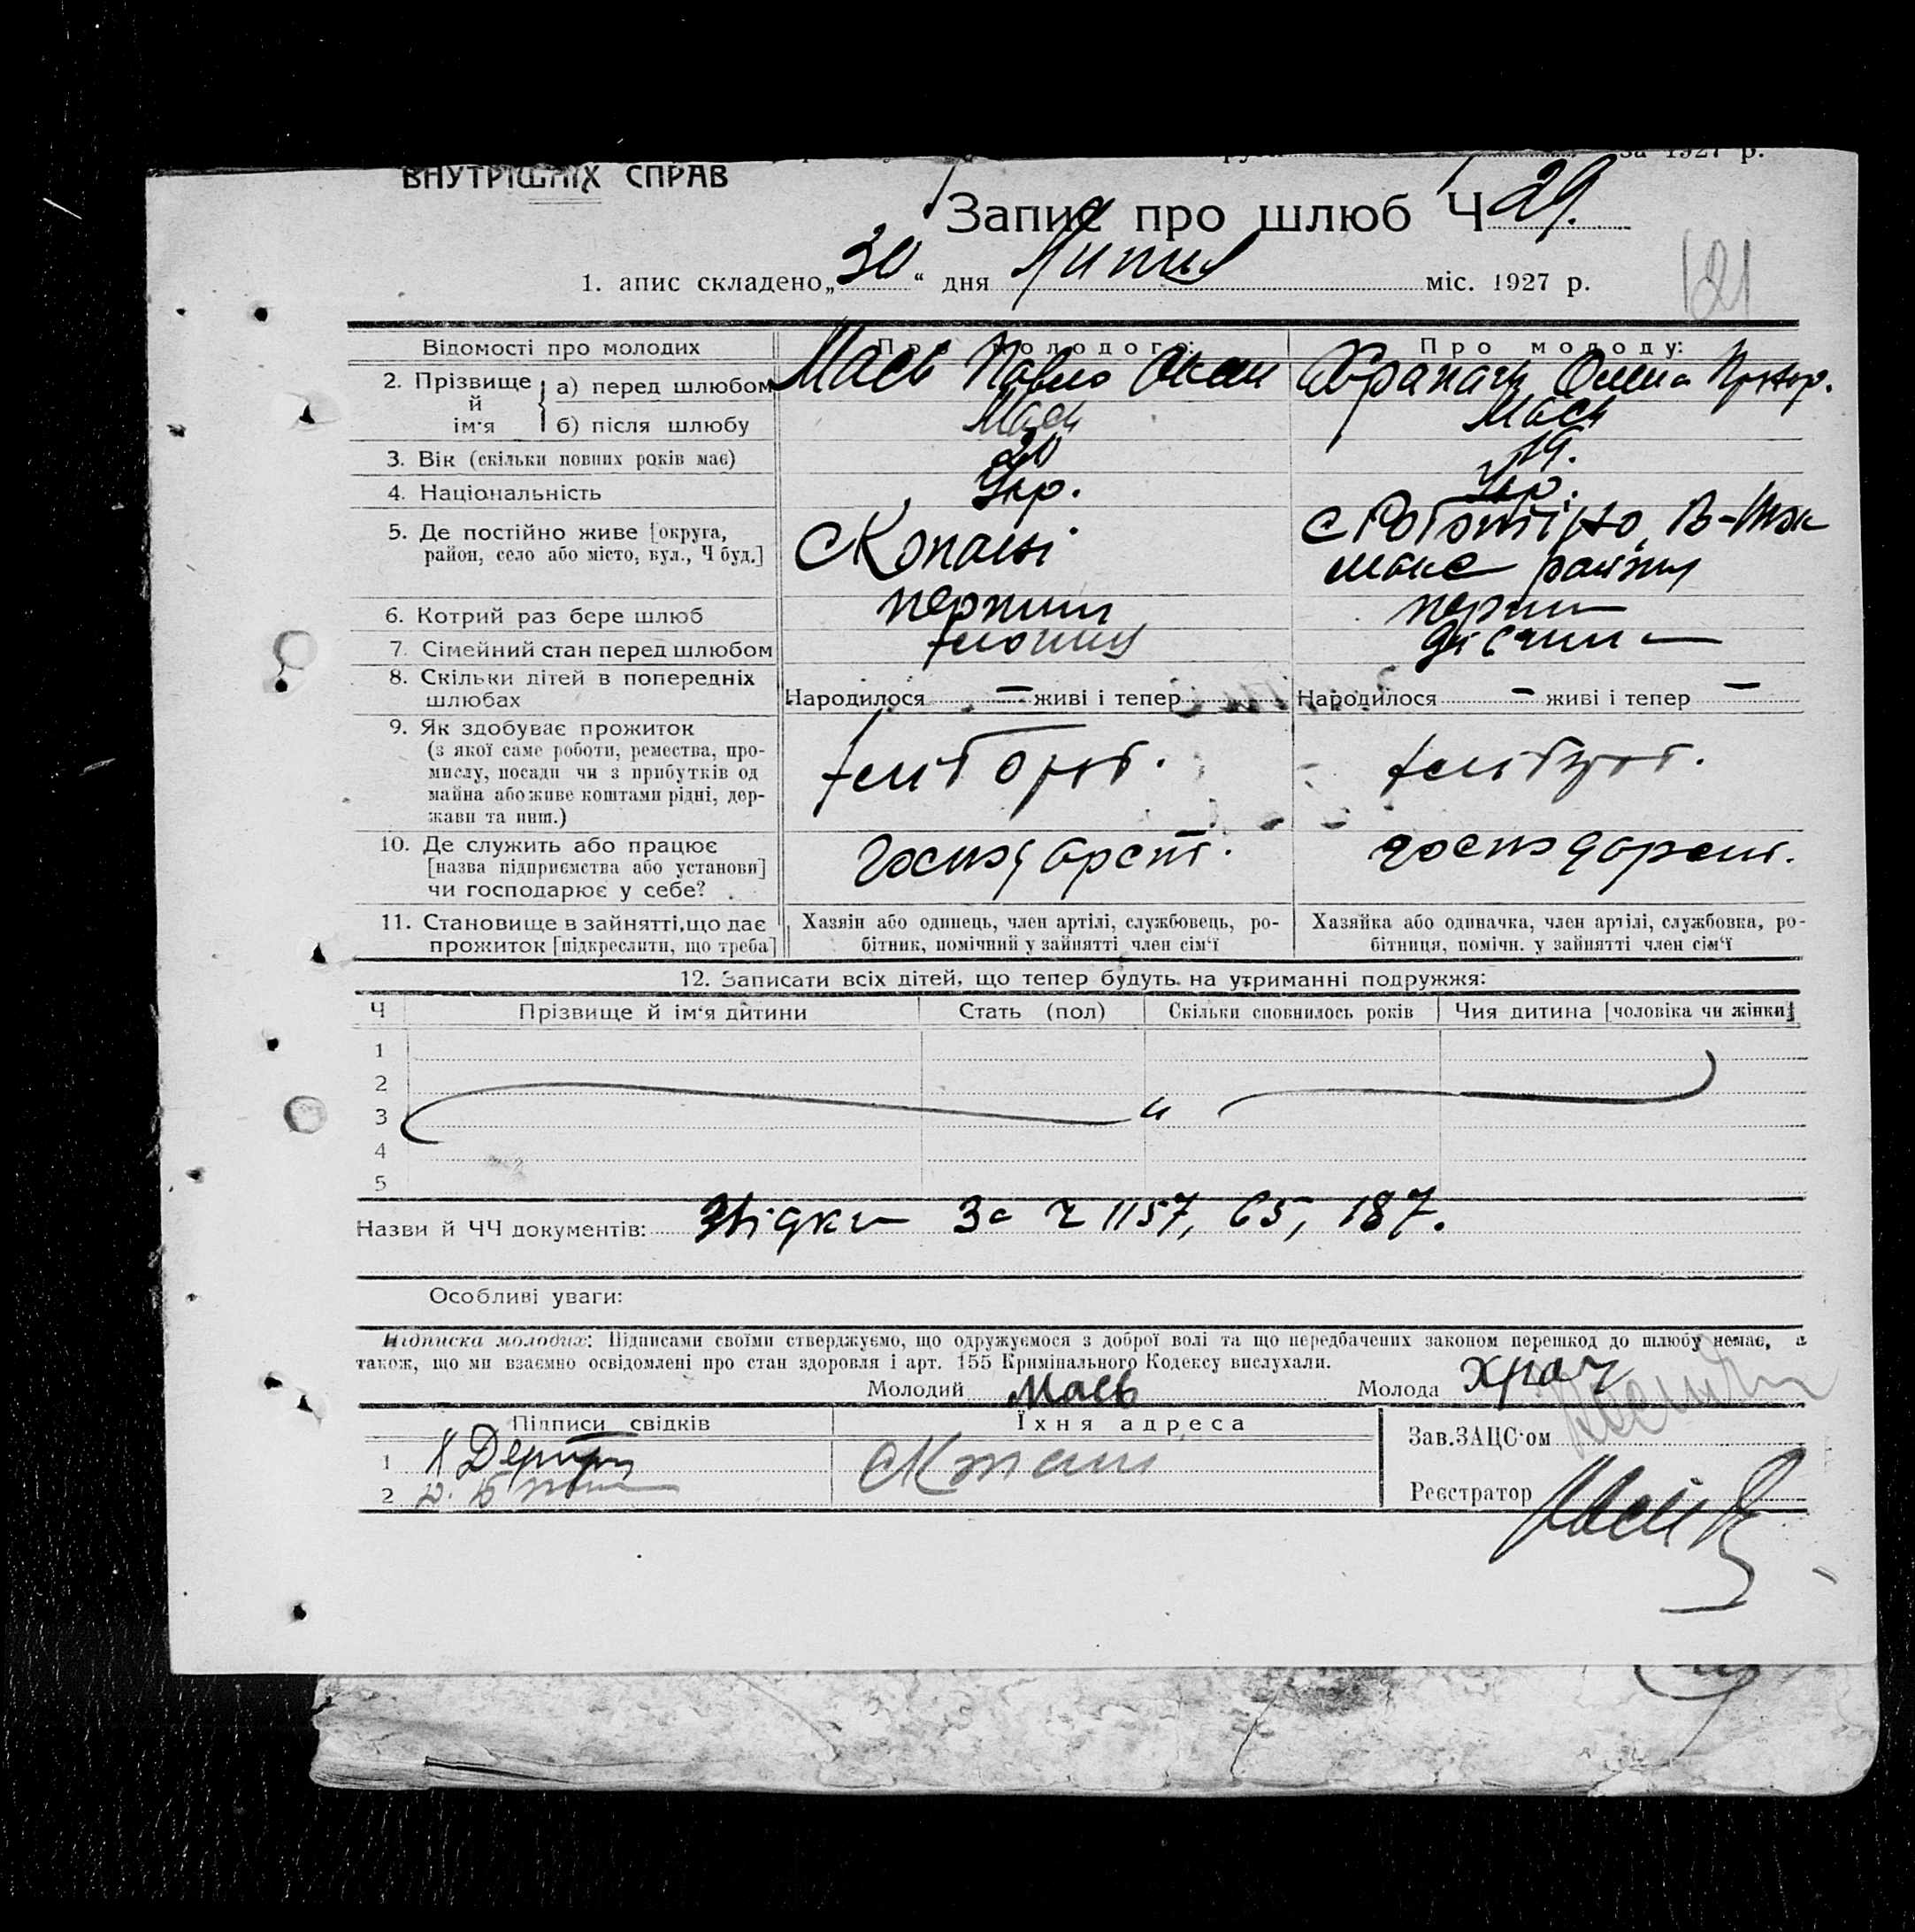 ВНУТРІШНІХ СПРАВ
за 1927 р.
Запис про шлюб Ч 29.
1. апис складено „30“ дня Липня міс. 1927 р.
121
Відомості про молодих
Про молодого:
Про молоду:
2. Прізвище й ім'я
а) перед шлюбом
Маєв Павло
Храпач
б) після шлюбу
3. Вік (скільки повних років має)
20
19.
4. Національність
Укр.
Укр.
5. Де постійно живе [округа,
район, село або місто, вул., Ч буд.]
с Копані
с
району
6. Котрий раз бере шлюб
перший
перш
7. Сімейний стан перед шлюбом
8. Скільки дітей в попередніх
шлюбах
Народилося — живі і тепер
Народилося — живі і тепер —
9. Як здобуває прожиток
(з якої саме роботи, ремества, про-
мислу, посади чи з прибутків од
майна або живе коштами рідні, дер-
жави та инш.)
10. Де служить або працює
[назва підприємства або установи]
чи господарює у себе?
господарст.
господарст.
11. Становище в зайнятті, що дає
прожиток [підкреслити, що треба]
Хазяін або одинець, член артілі, службовець, ро-
бітник, помічний у зайнятті член сім'ї
Хазяйка або одиначка, член артілі, службовка, ро-
бітниця, помічн. у зайнятті член сім'ї
12. Записати всіх дітей, що тепер будуть на утриманні подружжя:
Ч
Прізвище й ім'я дитини
Стать (пол)
Скільки сповнилось років
Чия дитина [чоловіка чи жінки]
1
2
3
4
5
Назви й ЧЧ документів: Звідки за ч 1157, 65, 187.
Особливі уваги:
Підписка молодих: Підписами своїми стверджуємо, що одружуємося з доброї волі та що передбачених законом перешкод до шлюбу немає, а
також, що ми взаємно освідомлені про стан здоровля і арт. 155 Кримінального Кодексу вислухали.
Молодий Маєв
Молода Храч
Підписи свідків
Їхня адреса
Зав.ЗАЦС'ом
1
2
Реєстратор